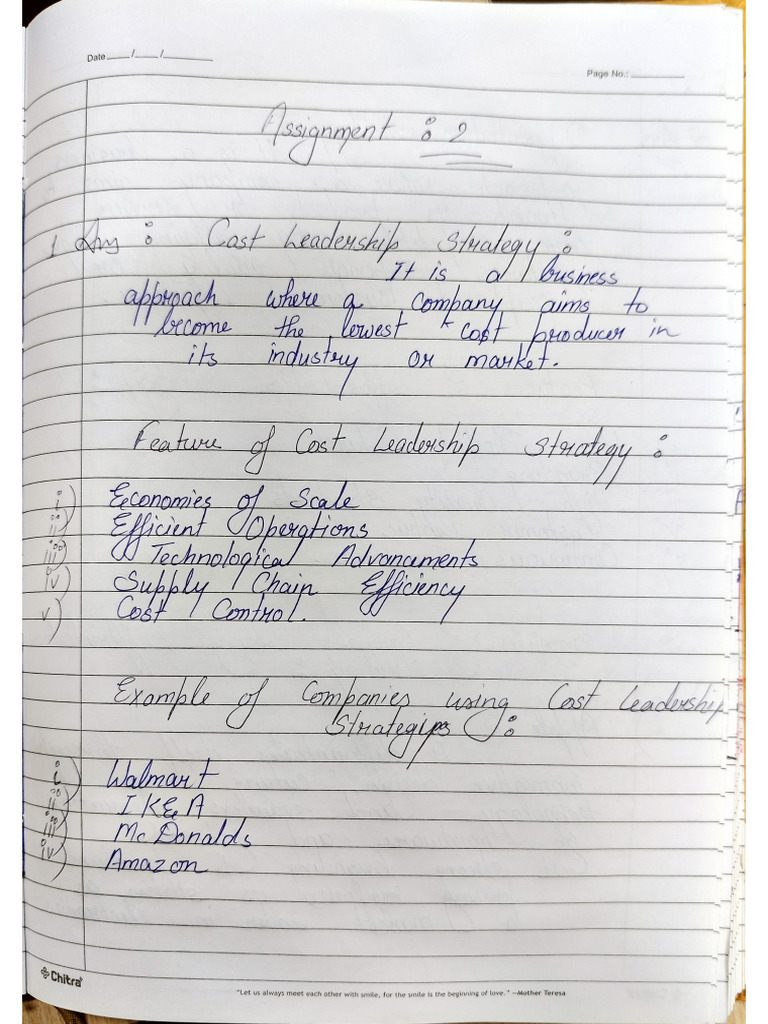 Date ___/___/_____
Page No.: _______
Assignment : 2
1 Ans : Cost Leadership Strategy :
It is a business
approach where a company aims to
become the lowest - cost producer in
its industry or market.
Feature of Cost Leadership Strategy :
i) Economies of Scale
ii) Efficient Operations
iii) Technological Advancements
iv) Supply Chain Efficiency
v) Cost Control.
Example of Companies using Cost Leadership
Strategies :
i) Walmart
ii) IKEA
iii) McDonalds
iv) Amazon
Chitra
"Let us always meet each other with smile, for the smile is the beginning of love." —Mother Teresa